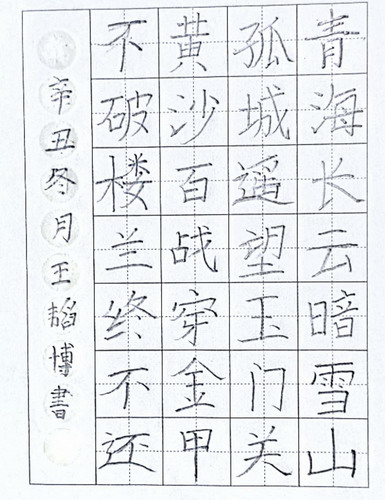 青海长云暗雪山
孤城遥望玉门关
黄沙百战穿金甲
不破楼兰终不还
辛丑冬月王韬博書